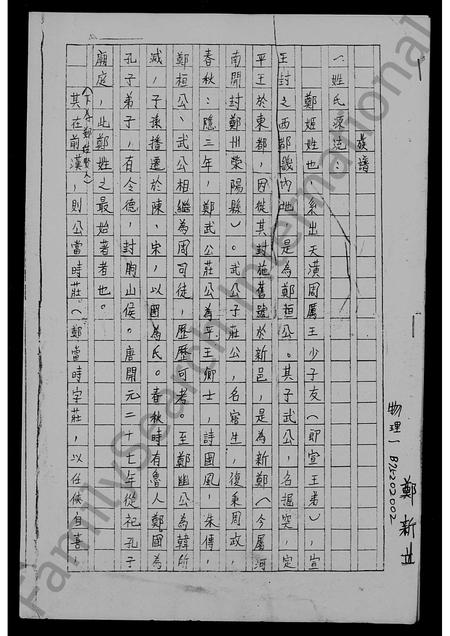 族譜
一、姓氏源流：
鄭姬姓也，系出天潢周厲王少子友（即宣王者），宣
王封之西都畿內地，是為鄭桓公。其子武公，名掘突，定
平王於東都，因徙其封施舊號於新邑，是為新鄭（今屬河
南開封鄭州榮陽縣）。武公子莊公，名寤生，復秉周政，
春秋：隱三年，鄭武公莊公為平王卿士，詩國風，朱傳，
鄭桓公、武公相繼為周司徒，歷歷可考。至鄭幽公為韓所
滅，子孫播遷於陳、宋，以國為氏。春秋時有魯人鄭國為
孔子弟子，有令德，封朐山侯。唐開元二十七年從祀孔子
廟庭，此鄭姓之最始著者也。
（下為鄭姓賢人）
其在前漢，則公當時莊（鄭當時字莊，以任俠自喜
物理一 B75202002
鄭新立
FamilySearch International